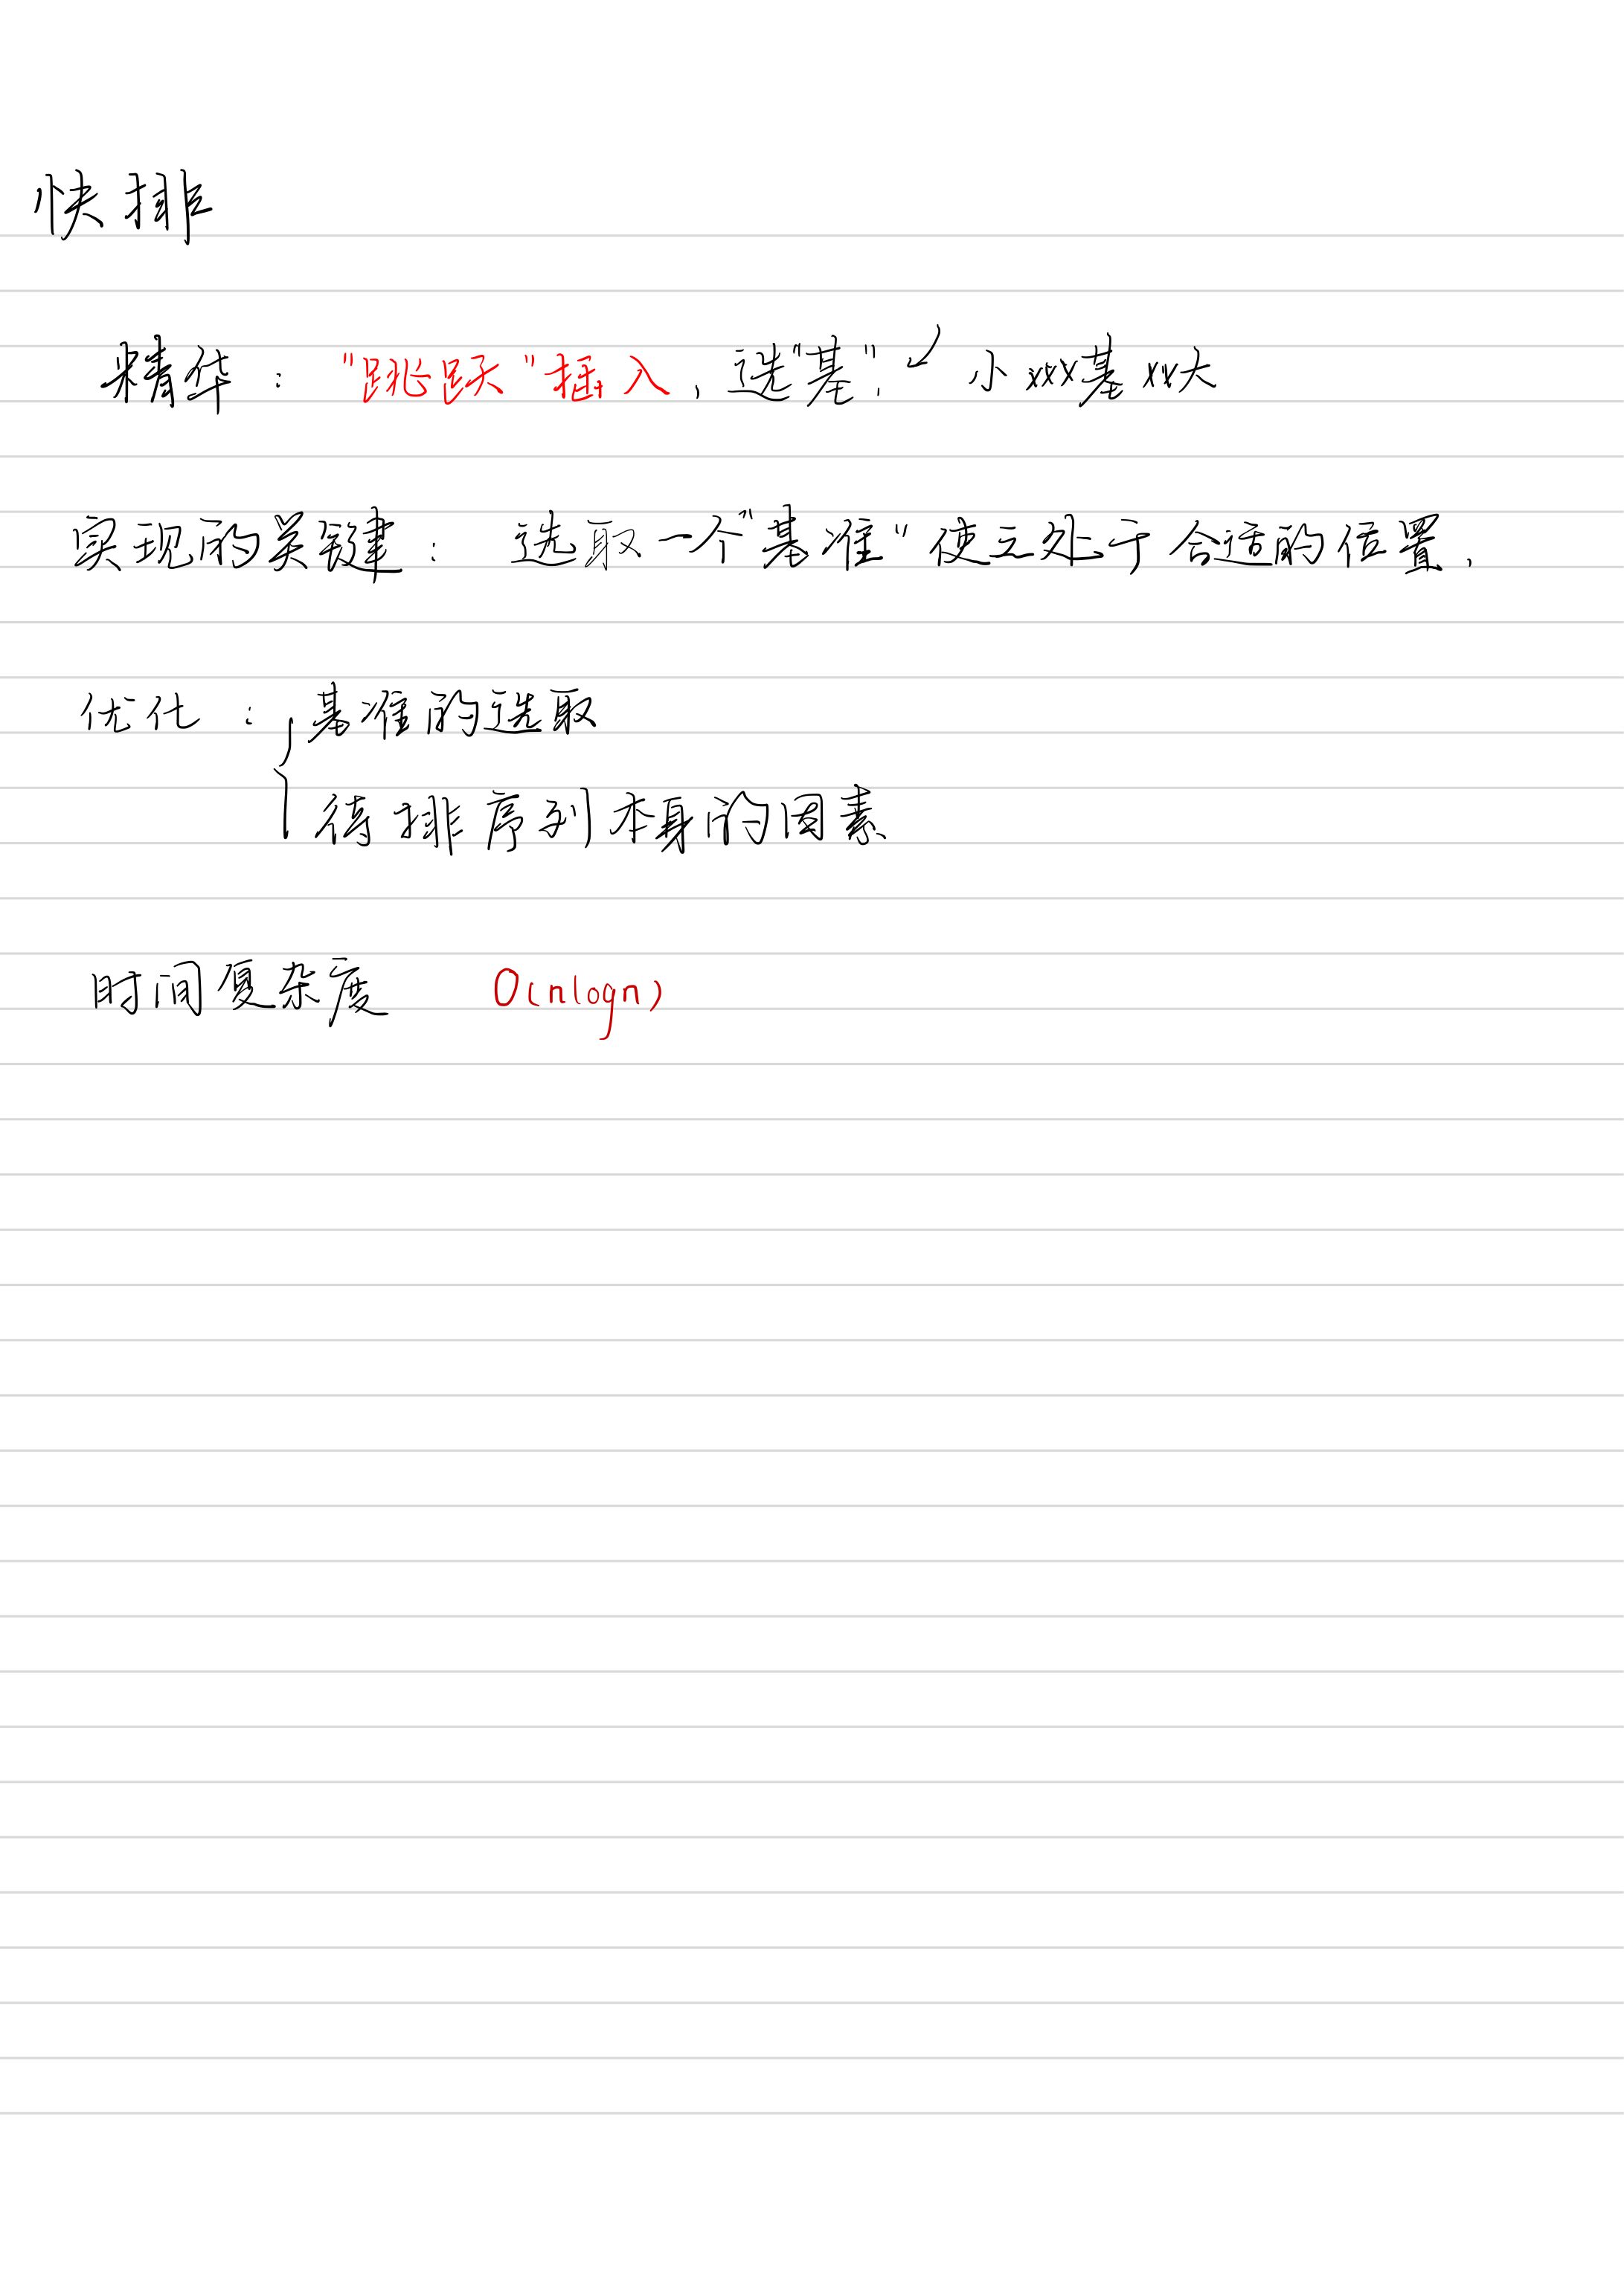 快排
精华："跳跃"插入,选"基", 小xxx基xx大
实现的关键： 选取一个"基准"使之处于合适的位置.
优化：基准的选取
待排序列本身的因素
时间复杂度 O(nlogn)